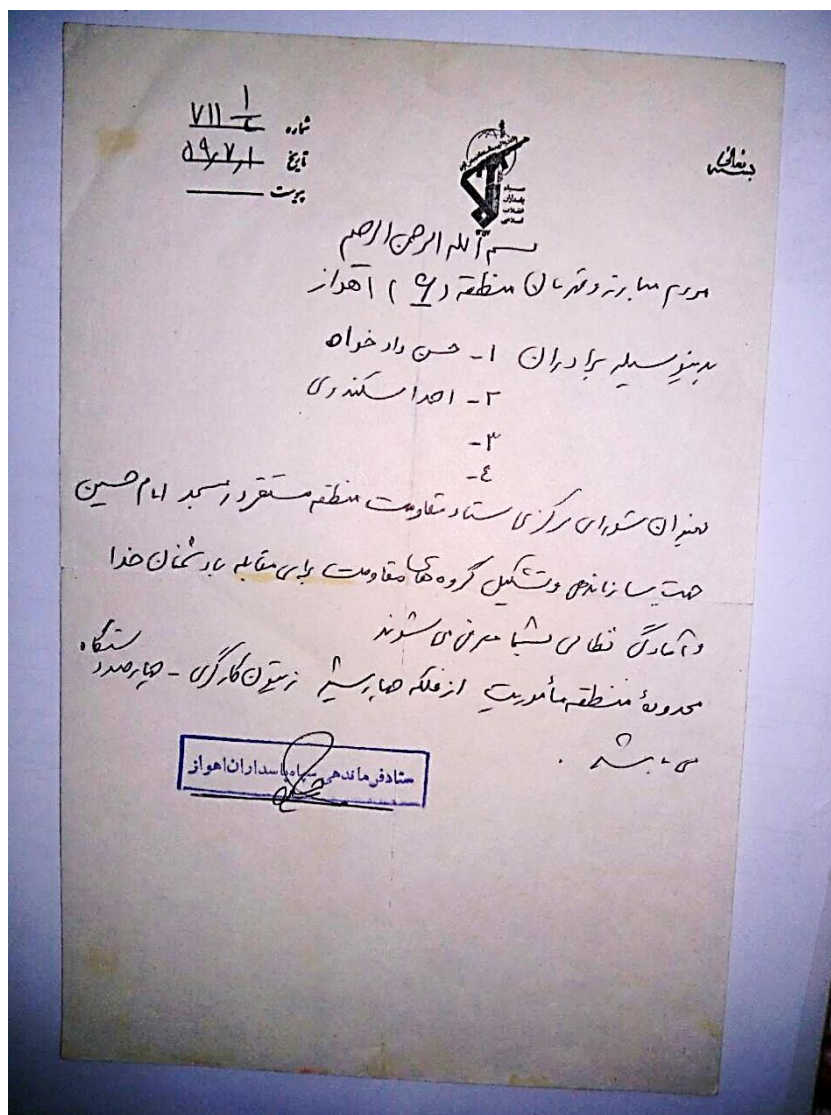 بسمه تعالی
شماره ۷۱۱
تاریخ ۵۹/۷/۱
پیوست
سپاه
پاسداران
انقلاب
اسلامی
بسم الله الرحمن الرحیم
مردم مبارز و قهرمان منطقه (۶) اهواز
بدینوسیله برادران ۱- حسن دادخواه
۲- احد اسکندری
۳-
٤-
بعنوان شورای مرکزی ستاد مقاومت منطقه مستقر در مسجد امام حسین
جهت سازماندهی و تشکیل گروه های مقاومت برای مقابله با دشمنان خدا
و آمادگی نظامی بشما معرفی می شوند
محدودهٔ منطقه مأموریت از فلکه چهارشیر زیتون کارگری - چهارصد دستگاه
می باشد .
ستاد فرماندهی سپاه پاسداران اهواز